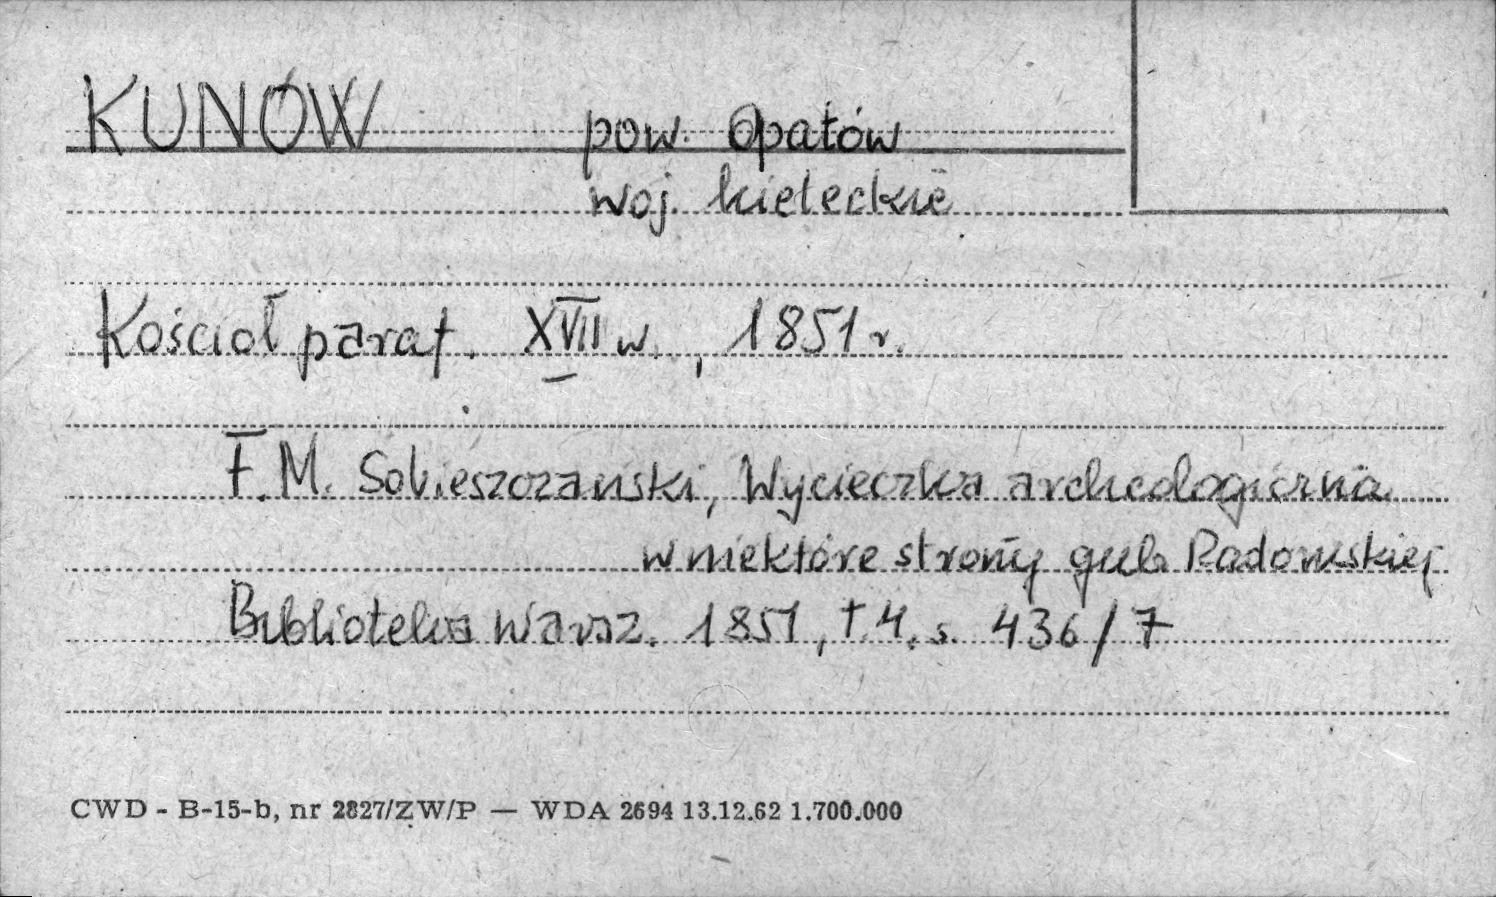 KUNÓW pow. Opatów
woj. kieleckie
Kościół paraf. XVII w., 1851 r.
F. M. Sobieszczański, Wycieczka archeologiczna
w niektóre strony gub. Radomskiej
Biblioteka Warsz. 1851, t. 4, s. 436/7
CWD - B-15-b, nr 2827/ZW/P — WDA 2694 13.12.62 1.700.000